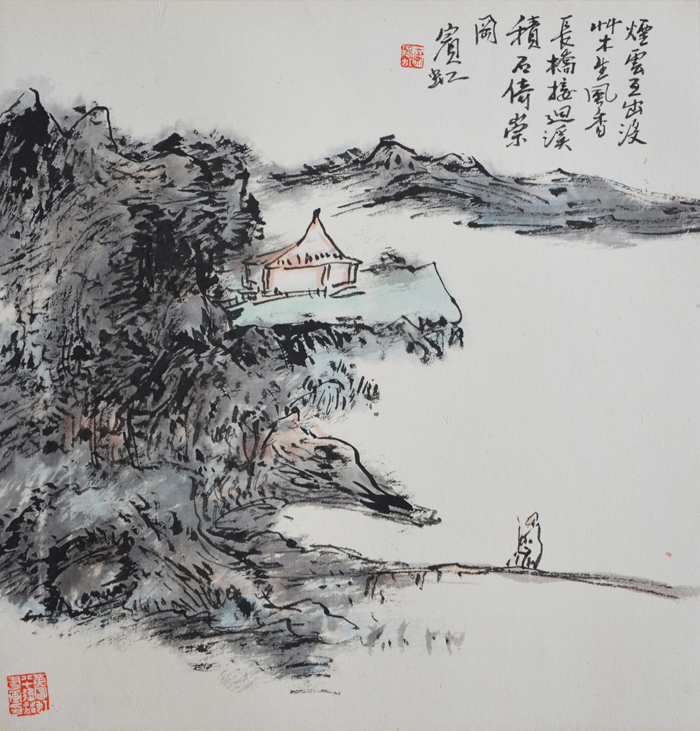 煙雲互出没
艸木生風香
長橋接迴溪
積石倚崇
岡
賓虹